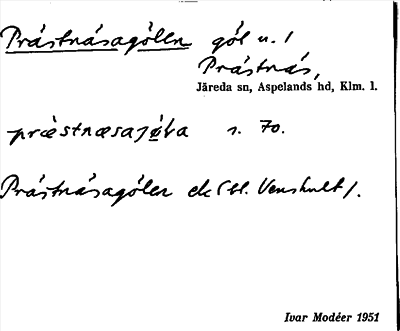 Prästnäsagölen göl n. 1
Prästnäs,
Järeda sn, Aspelands hd, Klm. l.
præstnæsajøla s. 70.
Prästnäsagölen ek (bl. Venshult).
Ivar Modéer 1951